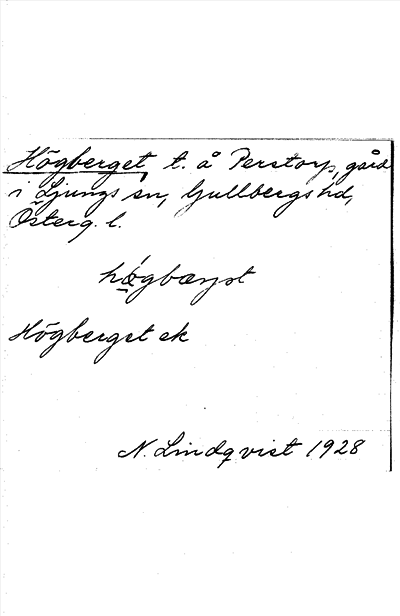 Högberget, t. å Perstorp, gård
i Ljungs sn, Gullbergs hd,
Österg. l.
högbærjət
Högberget ek
N. Lindqvist 1928